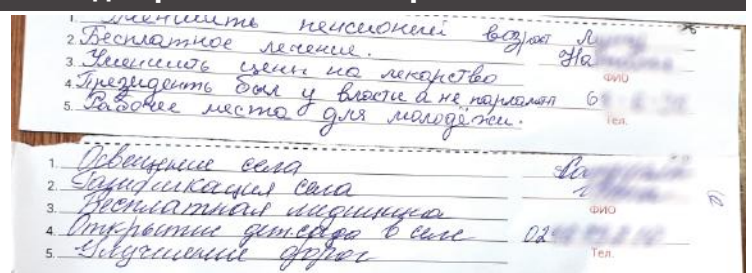 1. Уменшить пенсионний возраст
2. Бесплатное лечение.
3. Уменшить цены на лекарство
ФИО
4. Президенть был у власти а не парламент
5. Рабочее места для молодёжи.
Тел.
1. Освещение села
2. Газификация села
3. Бесплатная медицина
ФИО
4. Открытие детсада в селе
5. Улучшение дорог
Тел.